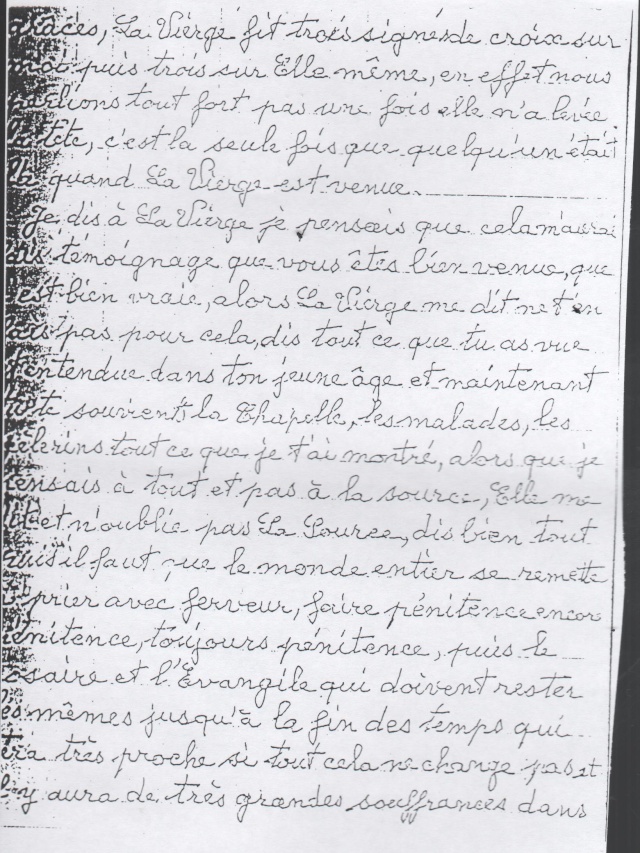 grâces, La Vièrge fit trois signes de croix sur
moi puis trois sur Elle même, en effet nous
parlions tout fort pas une fois elle n'a levée
la tête, c'est la seule fois que quelqu'un était
là quand La Vièrge est venue.
Je dis à La Vièrge je pensais que cela m'aurai
témoignage que vous êtes bien venue, que
c'est bien vraie, alors La Vièrge me dit ne t'en
fais pas pour cela, dis tout ce que tu as vue
entendue dans ton jeune âge et maintenant
te souvient la Chapelle, les malades, les
pèlerins tout ce que je t'ai montré, alors que je
pensais à tout et pas à la source, Elle me
dit et n'oublie pas La Source, dis bien tout
puis il faut que le monde entier se remette
à prier avec ferveur, faire pénitence encor
pénitence, toujours pénitence, puis le
rosaire et l'Évangile qui doivent rester
les mêmes jusqu'à la fin des temps qui
sera très proche si tout cela ne change pas et
il y aura de très grandes souffrances dans